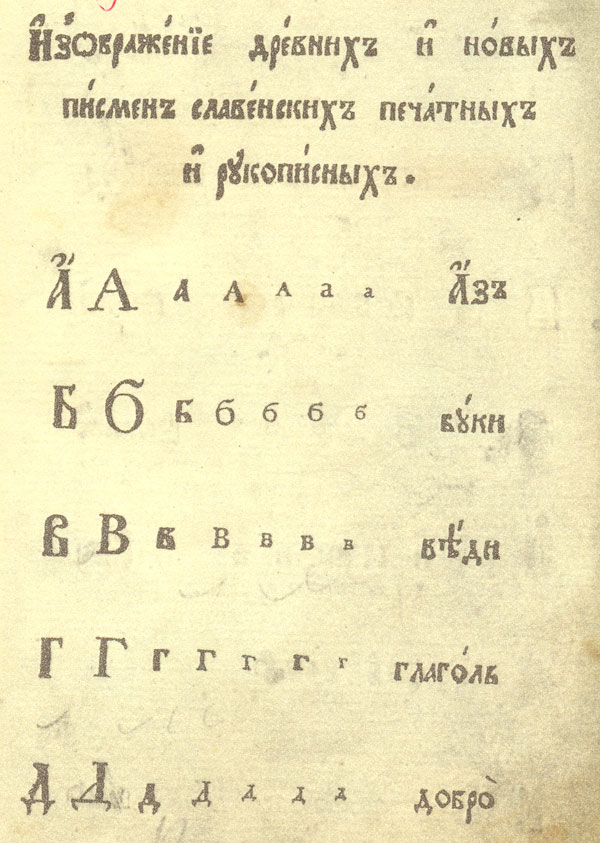 И҆зѡбраже́нїе дре́внихъ и҆ но́выхъ
пи́сменъ славе́нскихъ печа́тныхъ
и҆ рꙋкопи́сныхъ.
А҆́ А а А А а а А҆́зъ
Б Б б б б б б бꙋ́ки
В В в В в в в вѣ́ди
Г Г г г г г г глаго́ль
Д Д д д д д д добро̀